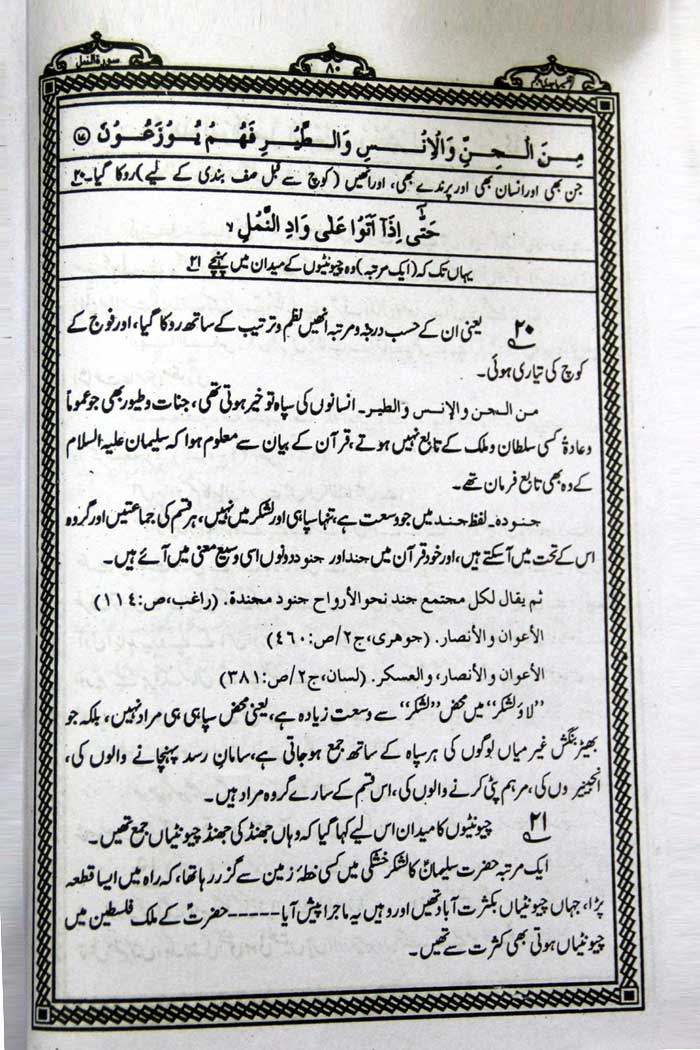 سورة النمل
۸۰
مِنَ الْجِنِّ وَالْاِنْسِ وَالطَّيْرِ فَهُمْ يُوْزَعُوْنَ ⑰
جن بھی اور انسان بھی اور پرندے بھی، اور انھیں (کوچ سے قبل صف بندی کے لیے) روکا گیا۔ ۲۰
حَتّٰۤى اِذَاۤ اَتَوْا عَلٰى وَادِ النَّمْلِ ۙ
یہاں تک کہ (ایک مرتبہ) وہ چیونٹیوں کے میدان میں پہنچے ۲۱
۲۰ یعنی ان کے حسب درجہ و مرتبہ انھیں نظم و ترتیب کے ساتھ روکا گیا، اور فوج کے
کوچ کی تیاری ہوئی۔
من الجن والإنس والطير۔ انسانوں کی سپاہ تو خیر ہوتی تھی، جنات و طیور بھی جو عموماً
و عادۃً کسی سلطان و ملک کے تابع نہیں ہوتے، قرآن کے بیان سے معلوم ہوا کہ سلیمان علیہ السلام
کے وہ بھی تابع فرمان تھے۔
جنودہ۔ لفظ جند میں جو وسعت ہے، تنہا سپاہی اور لشکر میں نہیں، ہر قسم کی جماعتیں اور گروہ
اس کے تحت میں آسکتے ہیں، اور خود قرآن میں جند اور جنود دونوں اسی وسیع معنی میں آئے ہیں۔
ثم يقال لكل مجتمع جند نحو الأرواح جنود مجندة. (راغب،ص:۱۱۴)
الأعوان والأنصار. (جوهری،ج۲/ص:۴۶۰)
الأعوان والأنصار، والعسكر. (لسان،ج۲/ص:۳۸۱)
’’لاؤ لشکر‘‘ میں محض ’’لشکر‘‘ سے وسعت زیادہ ہے، یعنی محض سپاہی ہی مراد نہیں، بلکہ جو
بھیڑ بنگش غیر میاں لوگوں کی ہر سپاہ کے ساتھ جمع ہو جاتی ہے، سامان رسد پہنچانے والوں کی،
انجینیروں کی، مرہم پٹی کرنے والوں کی، اس قسم کے سارے گروہ مراد ہیں۔
۲۱ چیونٹیوں کا میدان اس لیے کہا گیا کہ وہاں جھنڈ کی جھنڈ چیونٹیاں جمع تھیں۔
ایک مرتبہ حضرت سلیمانؑ کا لشکر خشکی میں کسی خطۂ زمین سے گزر رہا تھا، کہ راہ میں ایسا قطعہ
پڑا، جہاں چیونٹیاں بکثرت آباد تھیں اور وہیں یہ ماجرا پیش آیا ----- حضرتؑ کے ملک فلسطین میں
چیونٹیاں ہوتی بھی کثرت سے تھیں۔